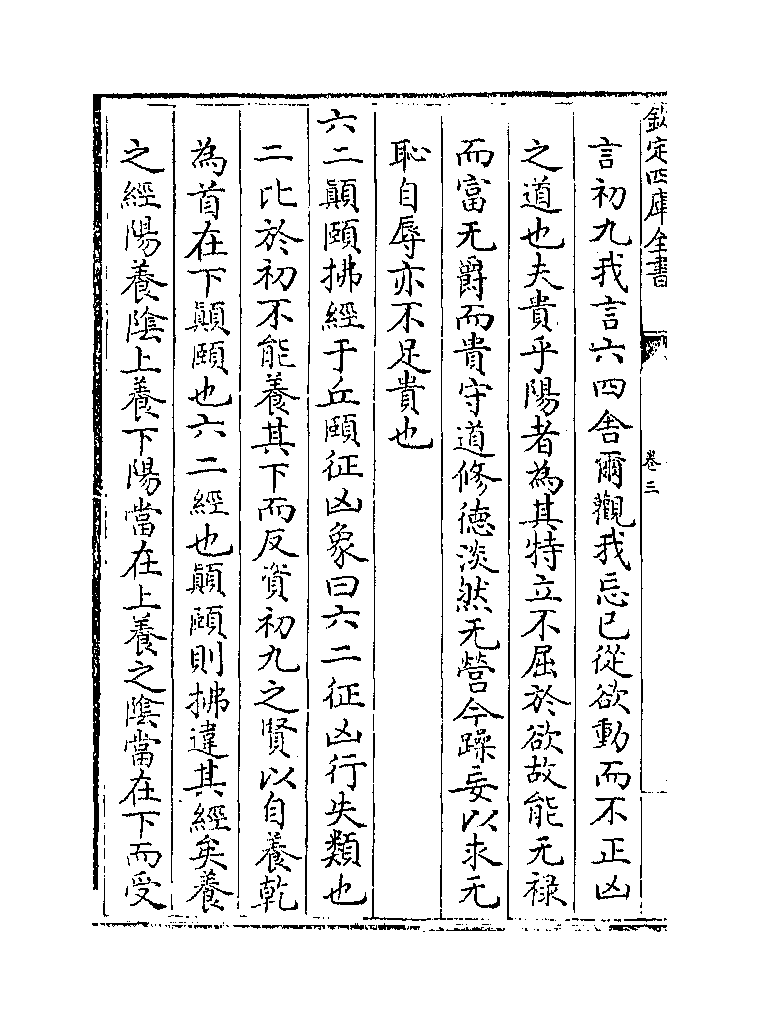 欽定四庫全書
卷三
言初九我言六四舎爾觀我忘已從欲動而不正凶
之道也夫貴乎陽者為其特立不屈於欲故能无禄
而富无爵而貴守道修徳淡然无營今躁妄以求无
恥自辱亦不足貴也
六二顛頤拂經于丘頤征凶象曰六二征凶行失類也
二比於初不能養其下而反資初九之賢以自養乾
為首在下顛頤也六二經也顛頤則拂違其經矣養
之經陽養隂上養下陽當在上養之隂當在下而受